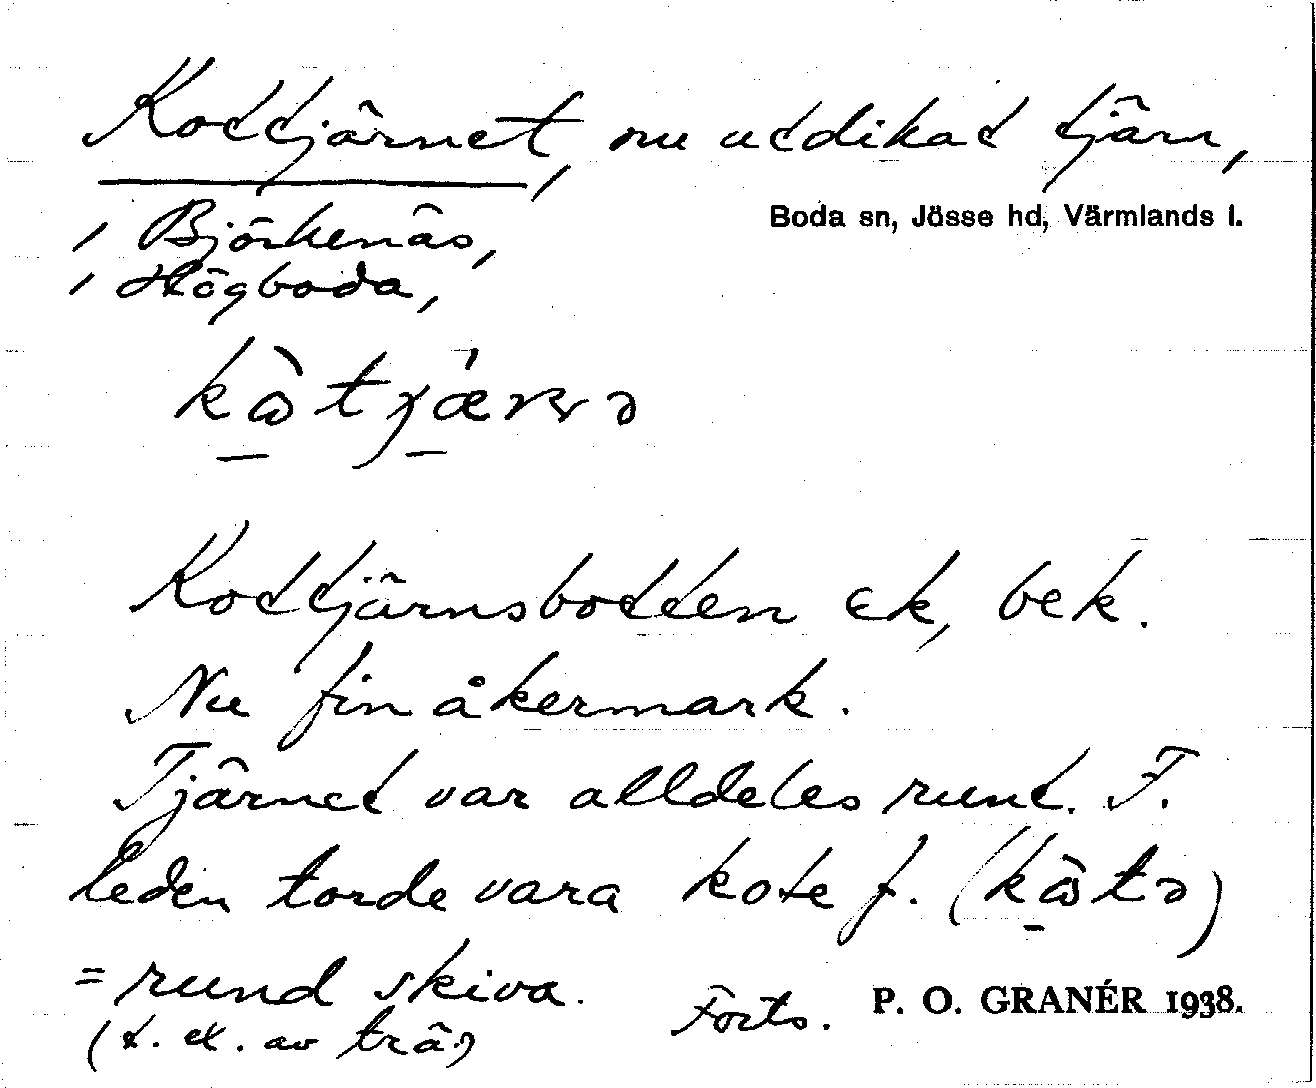 Kottjärnet, nu utdikat tjärn,
Boda sn, Jösse hd, Värmlands l.
i Björkenäs,
i Högboda,
Kottjärnsbotten ek, bek.
Nu fin åkermark.
Tjärnet var alldeles runt. F.
leden torde vara kote f.
= rund skiva.
(t. ex. av trä)
Forts. P. O. GRANÉR 1938.